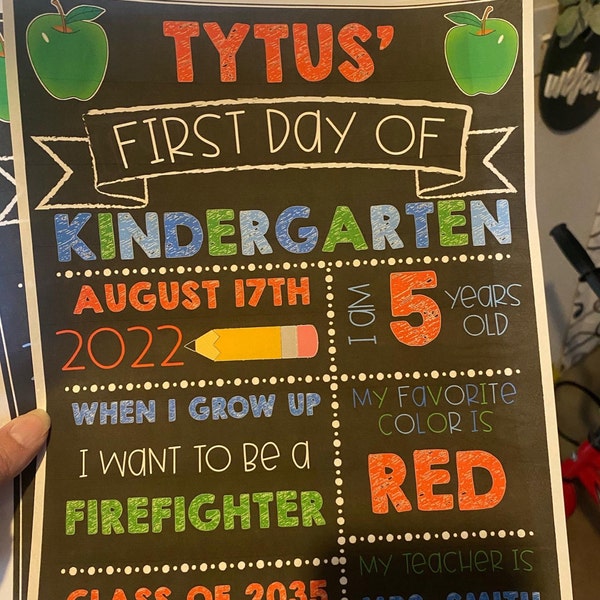 TYTUS'
FIRST DAY OF
KINDERGARTEN
AUGUST 17TH
2022
I AM 5 YEARS OLD
WHEN I GROW UP
I WANT TO BE A
FIREFIGHTER
MY FAVORITE
COLOR IS
RED
CLASS OF 2035
MY TEACHER IS
MRS. SMITH